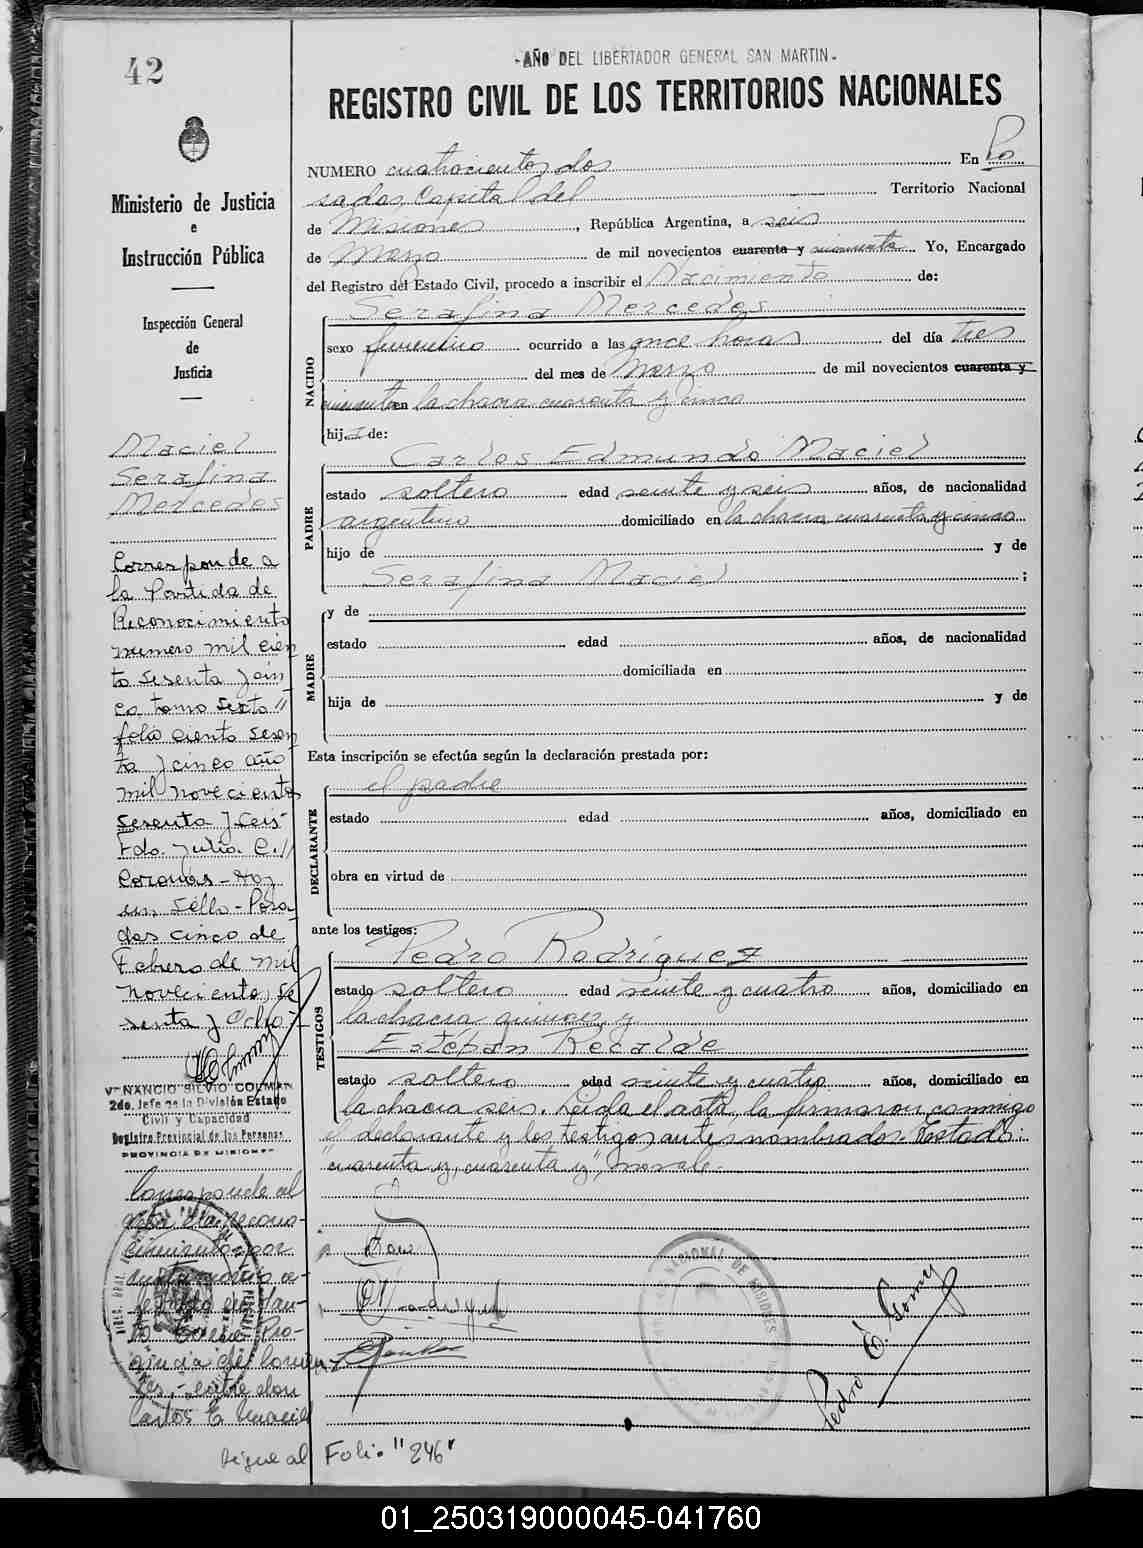 42
-AÑO DEL LIBERTADOR GENERAL SAN MARTIN-
REGISTRO CIVIL DE LOS TERRITORIOS NACIONALES
Ministerio de Justicia
e
Instrucción Pública
Inspección General
de
Justicia
NUMERO cuatrocientos dos En Po
sadas, Capital del Territorio Nacional
de Misiones, República Argentina, a seis
de Marzo de mil novecientos cuarenta y cincuenta Yo, Encargado
del Registro del Estado Civil, procedo a inscribir el Nacimiento de:
NACIDO
Serafina Mercedes
sexo femenino ocurrido a las once horas del día tres
del mes de Marzo de mil novecientos cuarenta y
cincuenta en la chacra cuarenta y cinco
hija de:
PADRE
Carlos Edmundo Maciel
estado soltero edad veinte y seis años, de nacionalidad
argentino domiciliado en la chacra cuarenta y cinco
hijo de y de
Serafina Maciel ;
MADRE
y de
estado edad años, de nacionalidad
domiciliada en
hija de y de
Esta inscripción se efectúa según la declaración prestada por:
DECLARANTE
el padre
estado edad años, domiciliado en
obra en virtud de
ante los testigos:
TESTIGOS
Pedro Rodríguez
estado soltero edad veinte y cuatro años, domiciliado en
la chacra quince, y
Esteban Recalde
estado soltero edad veinte y cuatro años, domiciliado en
la chacra seis. Leida el acta, la firmaron conmigo
el declarante y los testigos antes nombrados. Testado:
"cuarenta y, cuarenta y", no vale.
Maciel
Serafina
Mercedes
Corresponde a
la Partida de
Reconocimiento
número mil cien
to sesenta y cin
co tomo sexto"
folio ciento sesen
ta y cinco año
mil novecientos
sesenta y seis-
Fdo. Julio C.
Hay
un sello- Posa
das cinco de
Febrero de mil
novecientos se
senta y Ocho
VENANCIO SILVIO COLMAN
2do. Jefe de la División Estado
Civil y Capacidad
Registro Provincial de las Personas
PROVINCIA DE MISIONES
Corresponde al
acta de recono-
cimiento por
Carlos E. Maciel
Sigue al Folio "246"
NACIONAL DE MISIONES
Pedro E. Gomez
01_250319000045-041760